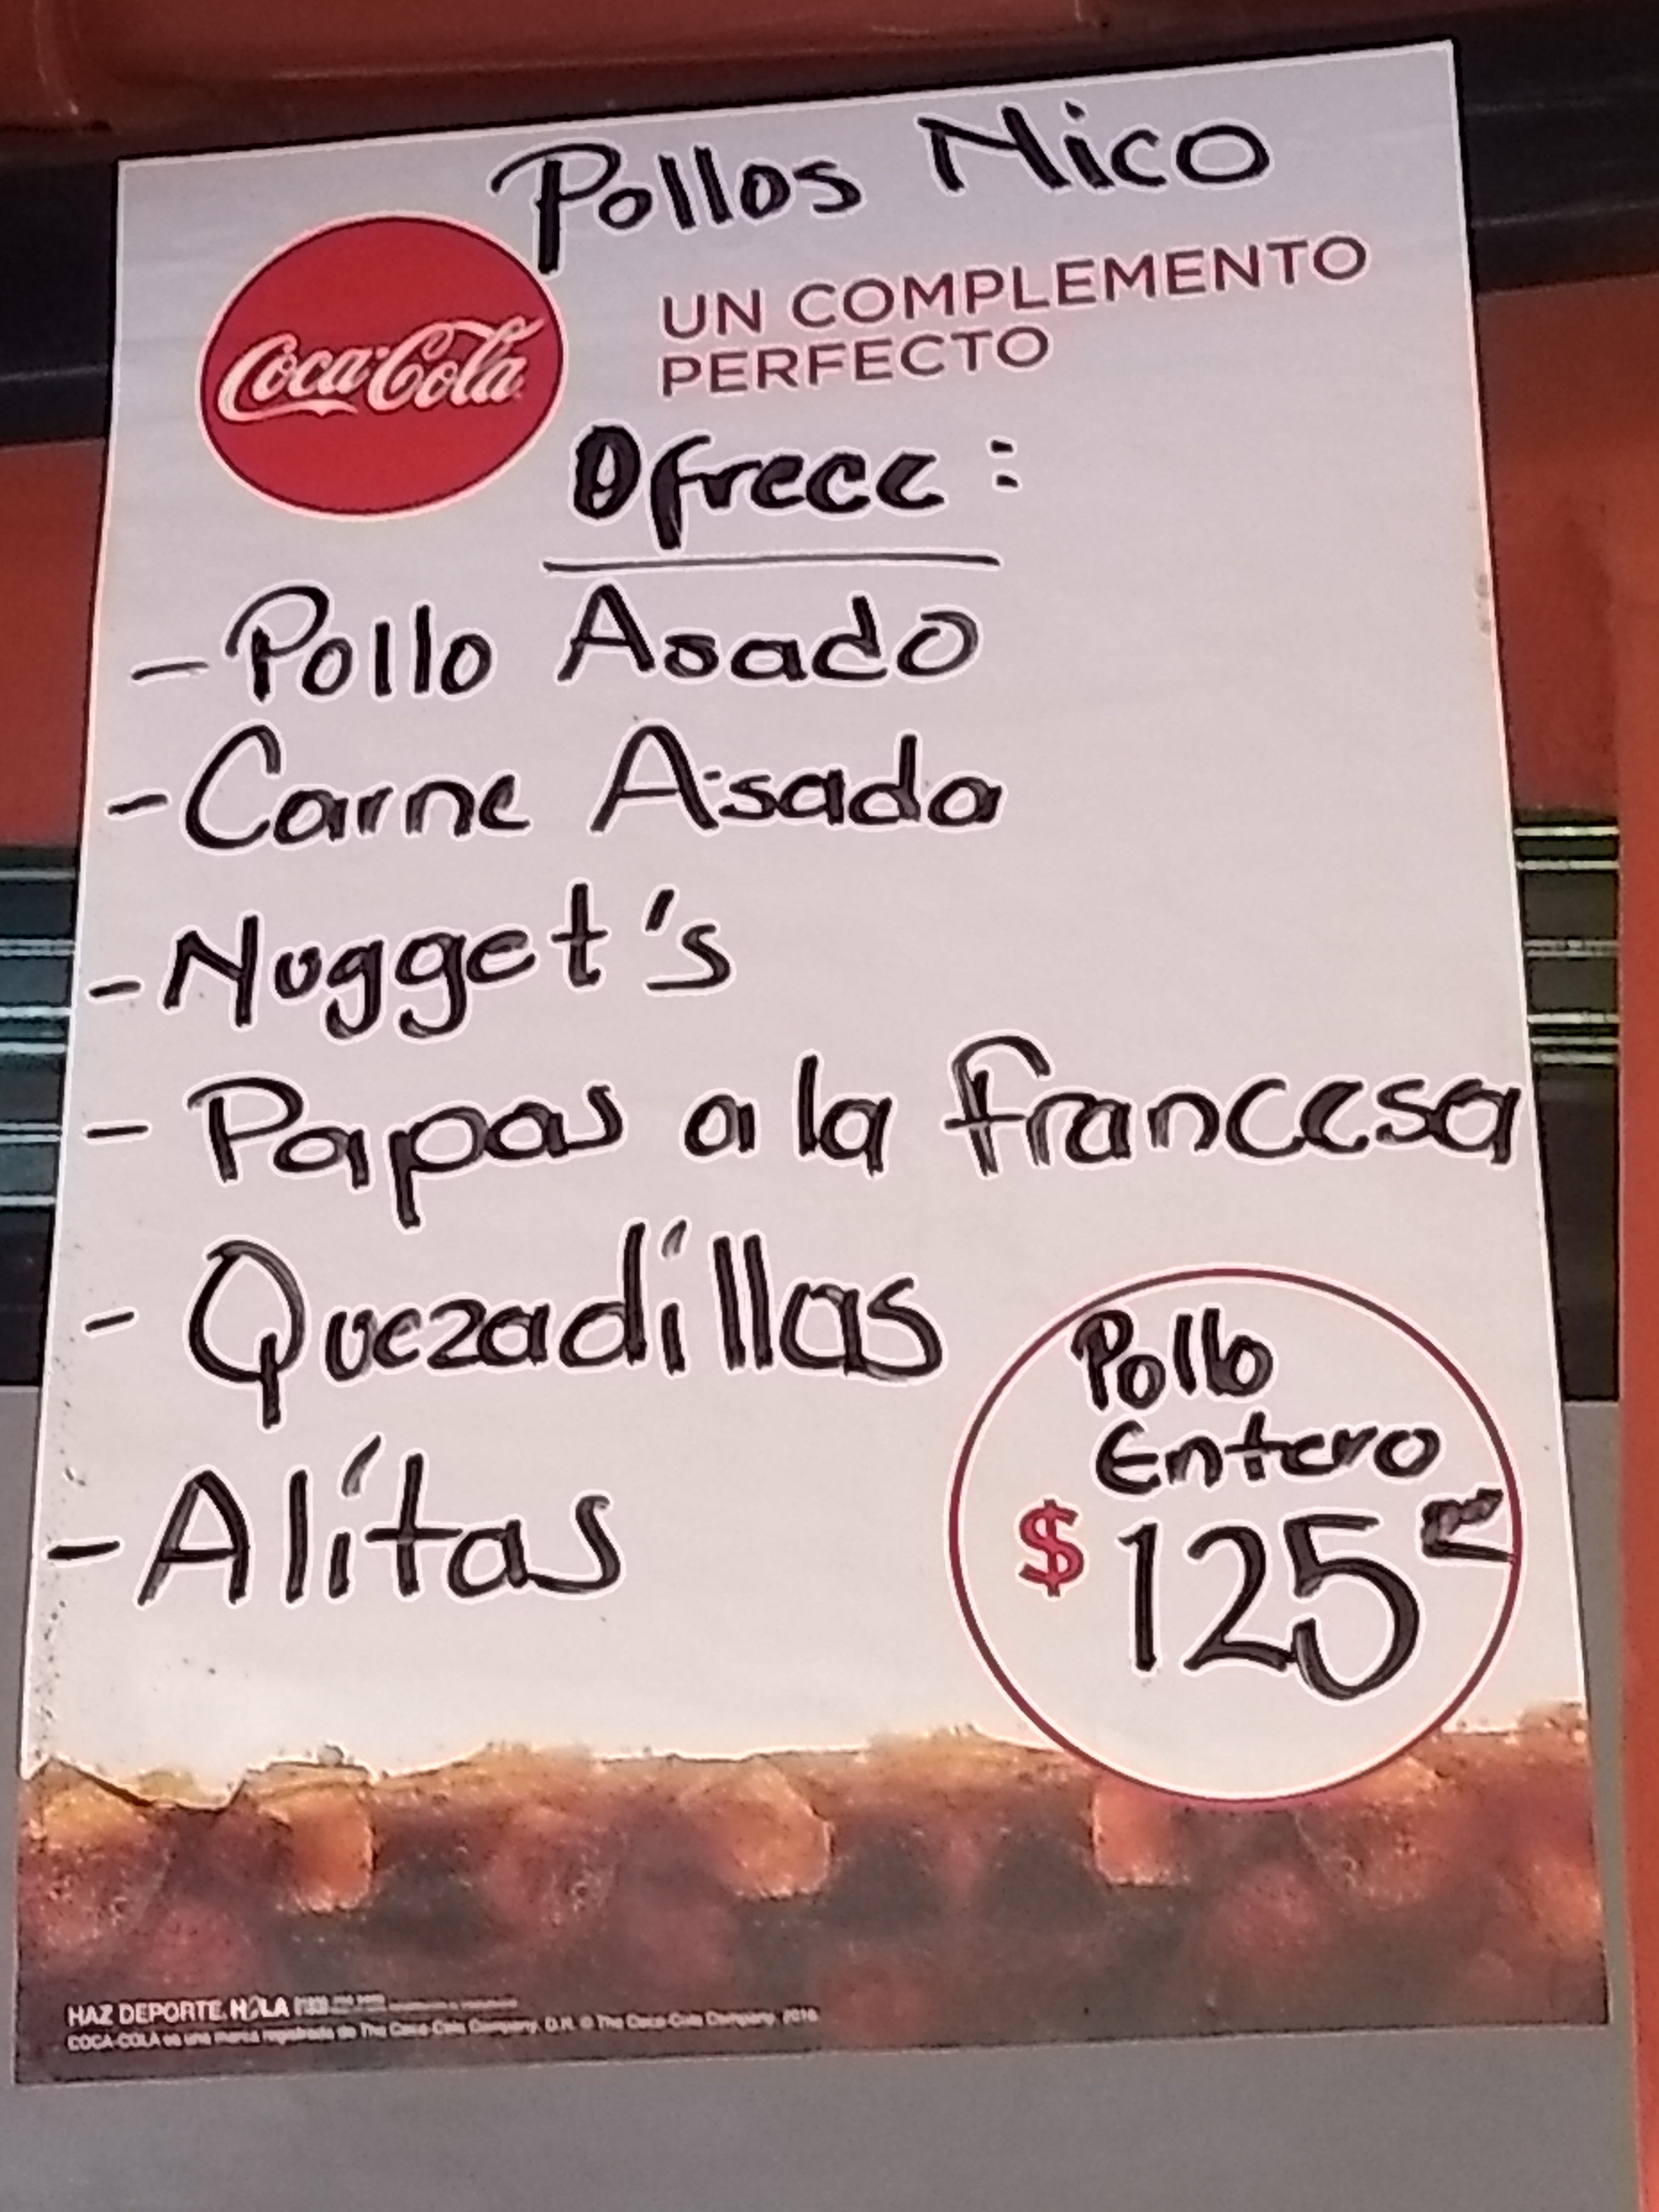 Pollos Nico
Coca-Cola
UN COMPLEMENTO
PERFECTO
Ofrece:
- Pollo Asado
- Carne Asada
- Nugget's
- Papas a la francesa
- Quezadillas
- Alitas
Pollo
Entero
$ 125
HAZ DEPORTE. HOLA
COCA-COLA es una marca registrada de The Coca-Cola Company. D.R. © The Coca-Cola Company, 2016.